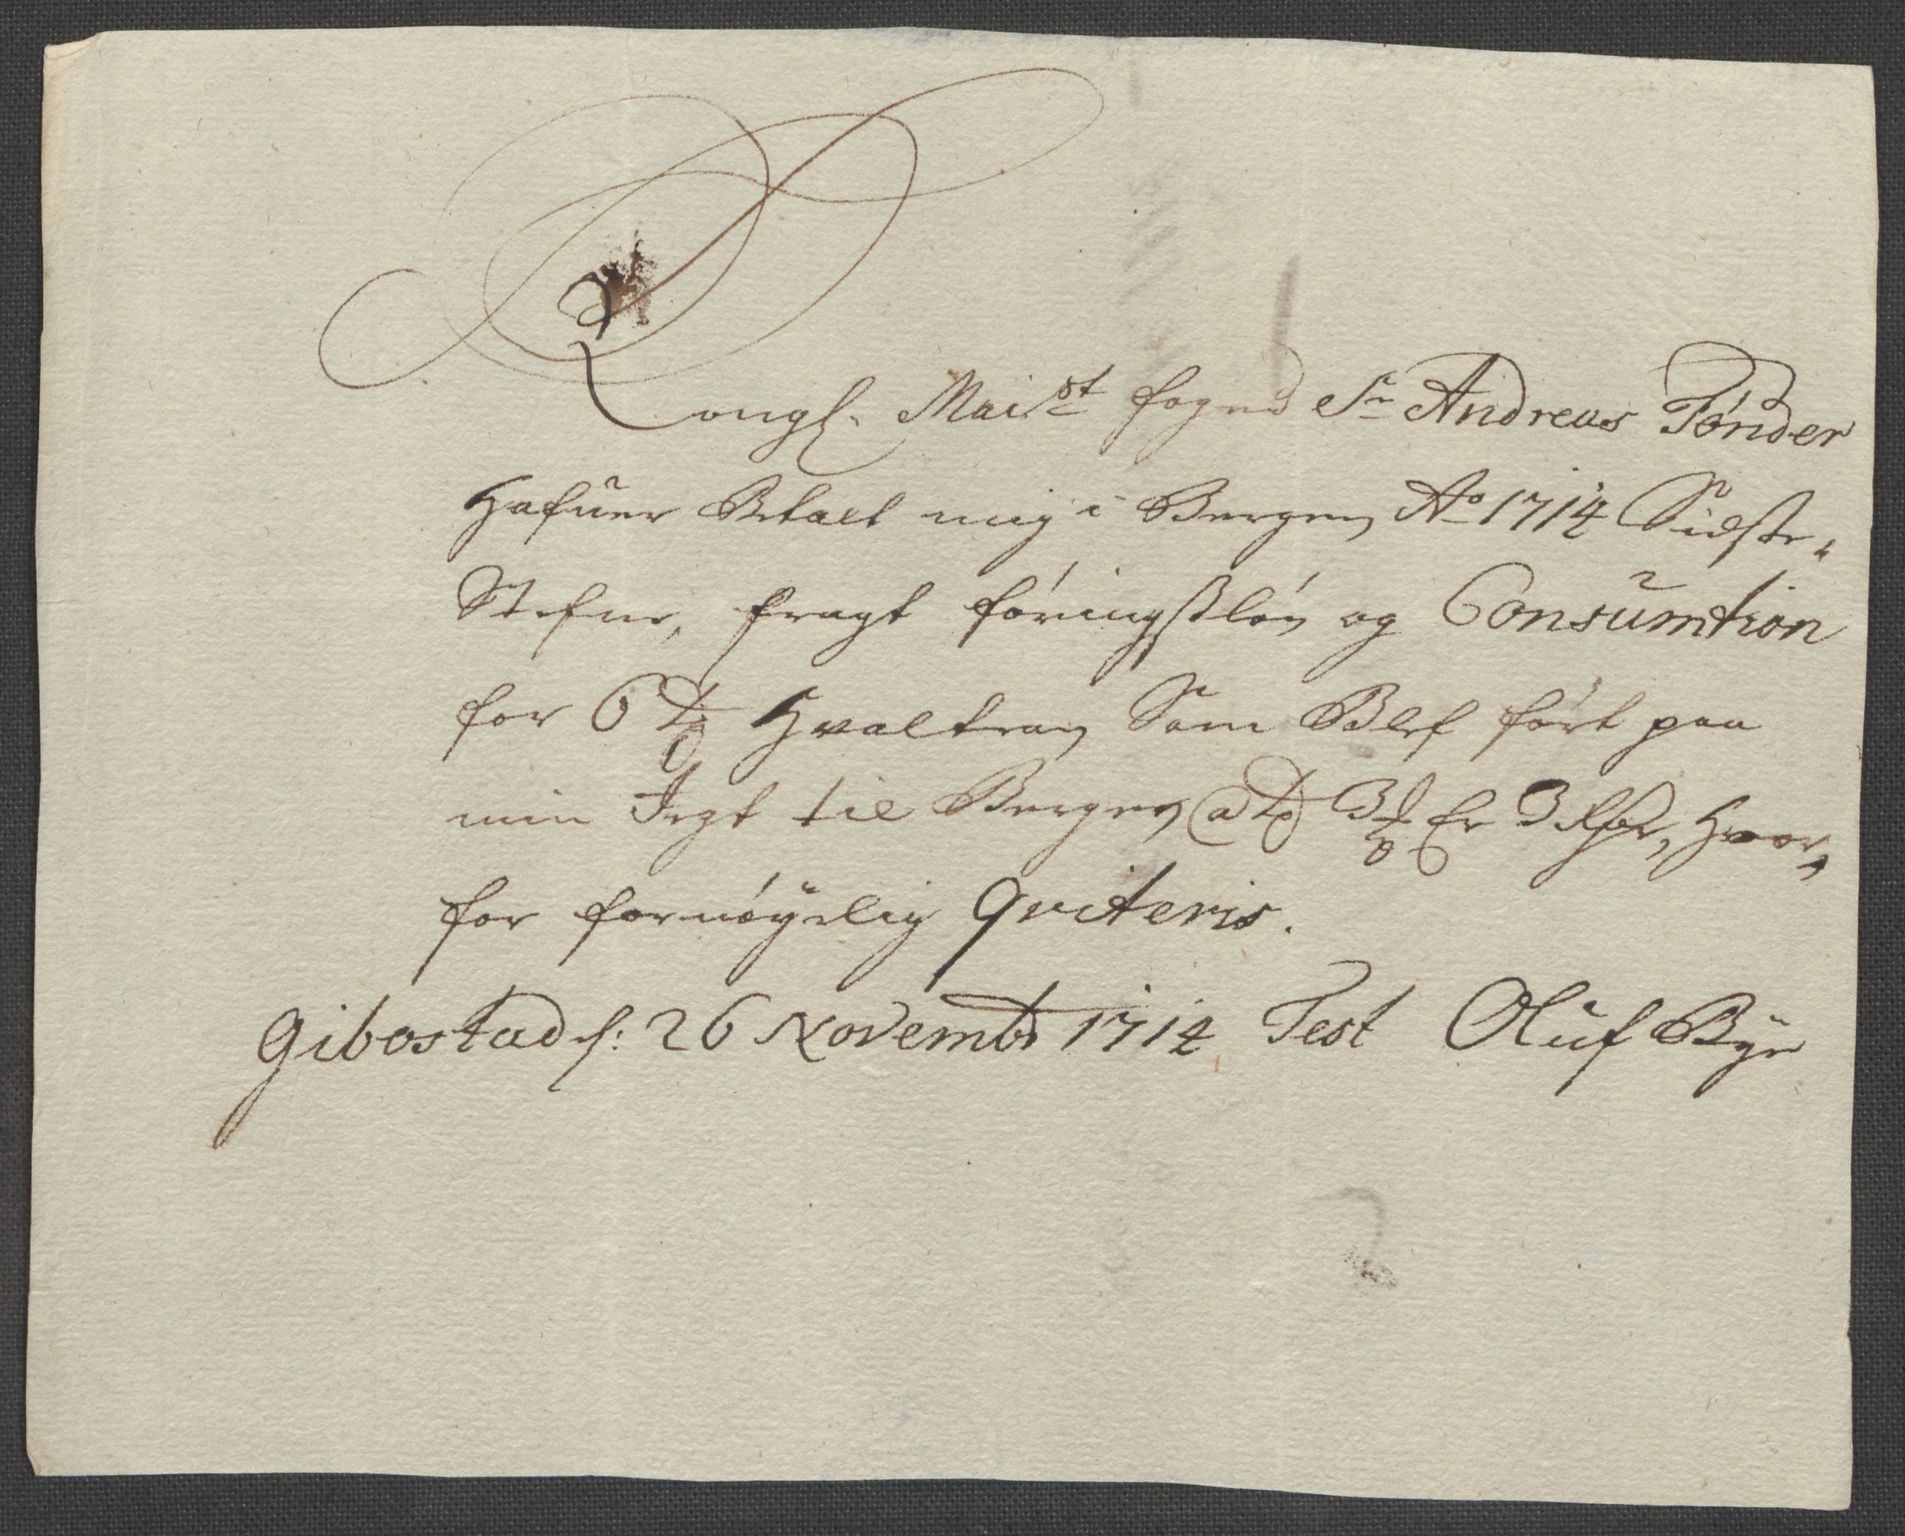 Kongl. Mai.st foged Sr Andreas Tønder
Hafuer Betalt mig i Bergen Ao 1714 Sidste
Stefne, fragt føringsløn og Consumtion
for 6 Hvaltran Som Blef ført paa
min Iegt til Bergen a 3 Er 3 Rdr, Hvor,
for fornøyelig qviteris.
Gibostad d: 26 Novembr 1714 Test Oluf Bye